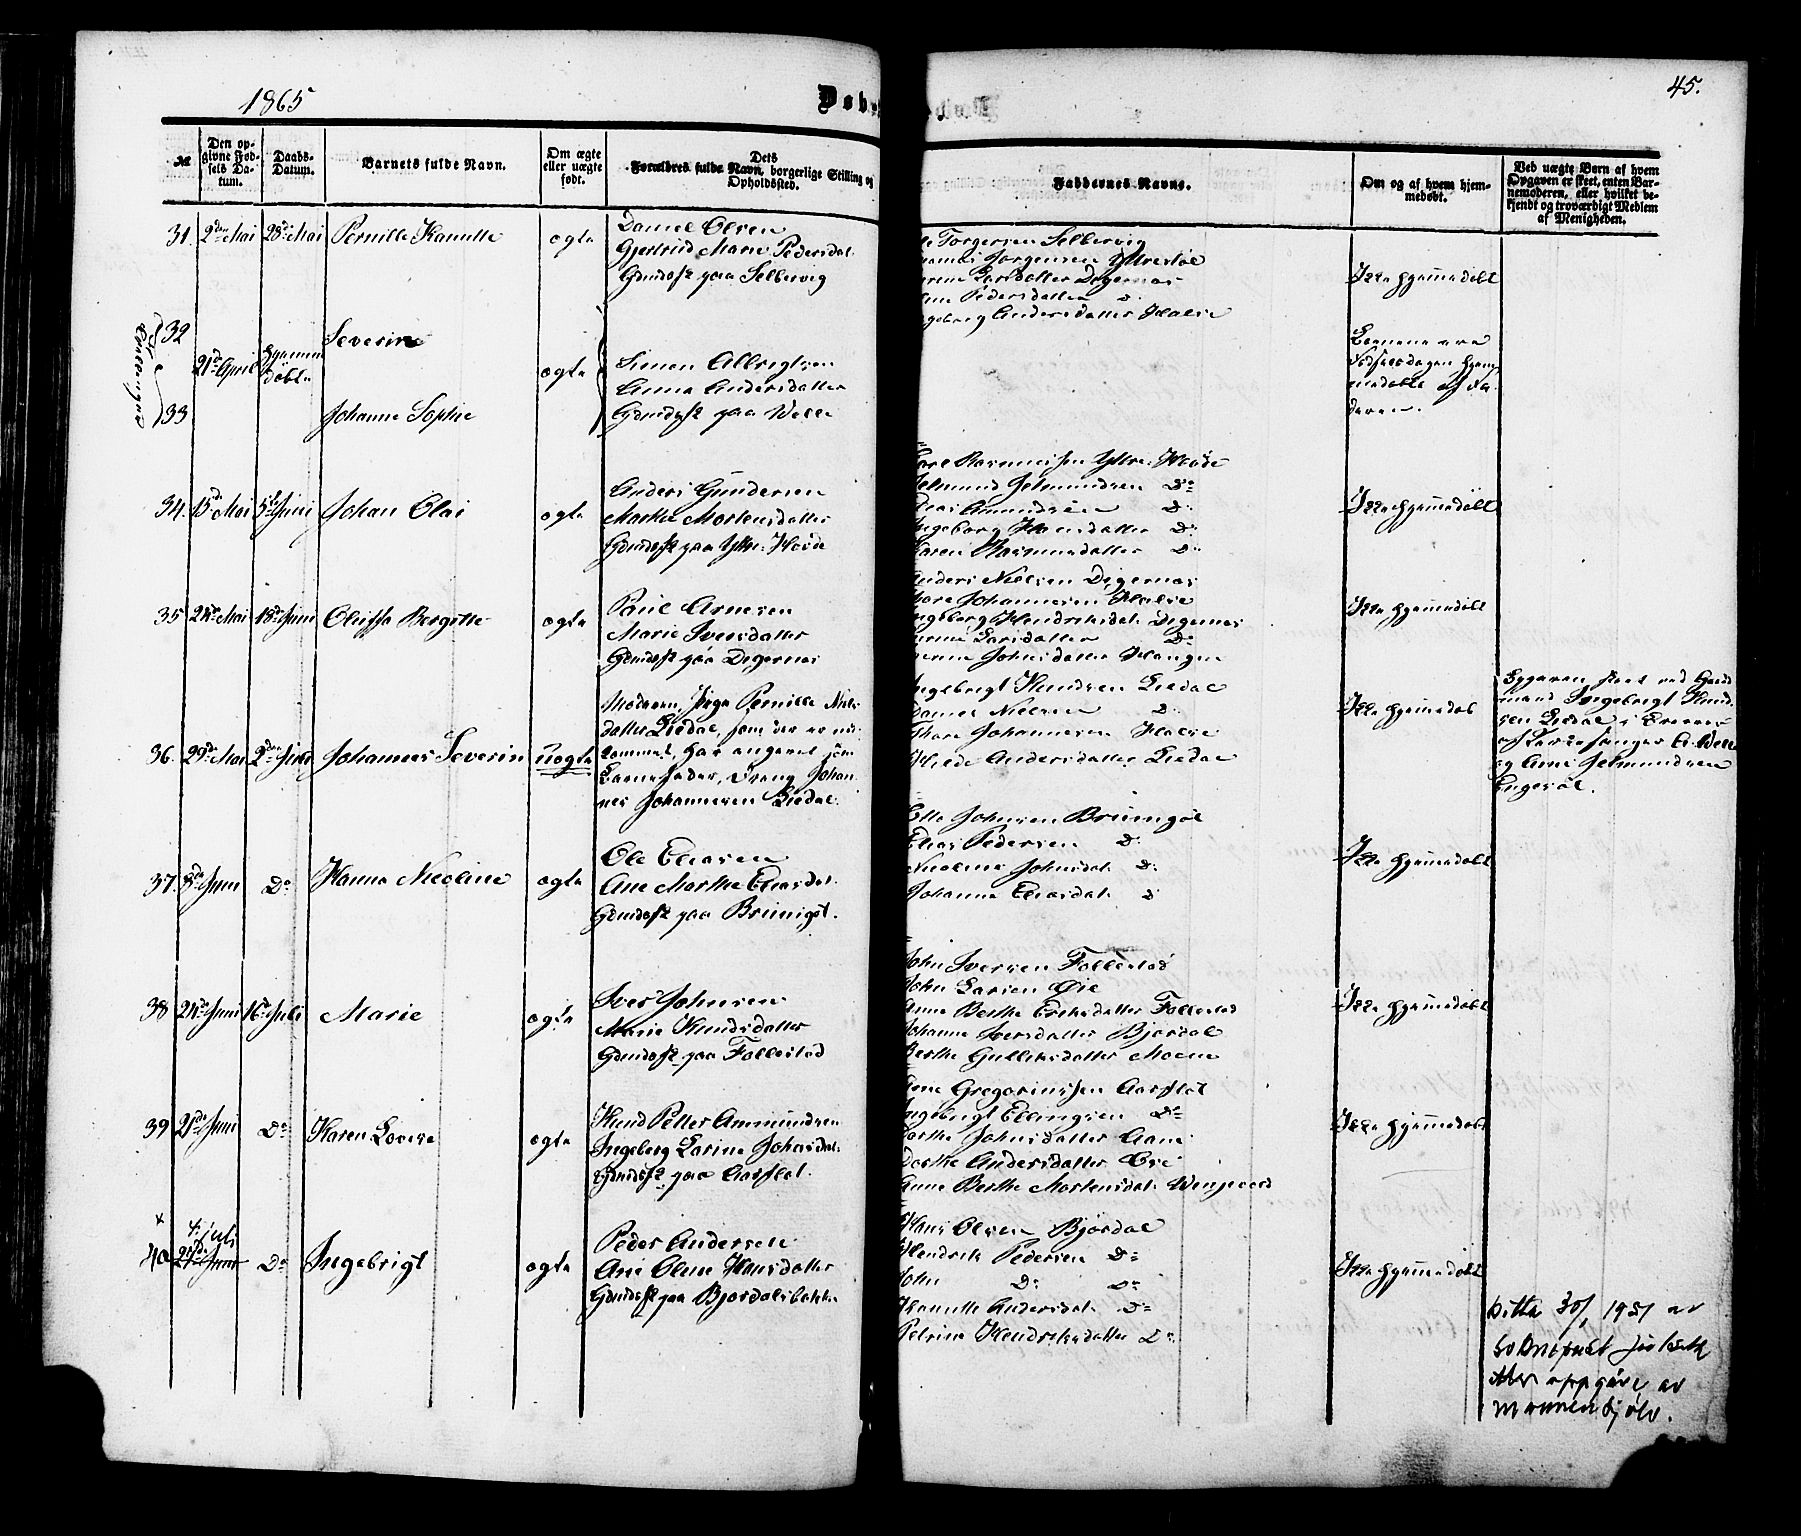 1865
Døb
45.
№
Den opgivne Fødsels Datum.
Daabs-Datum.
Barnets fulde Navn.
Om ægte eller uægte født.
Dets Forældres fulde Navn, borgerlige Stilling og Opholdssted.
Faddernes Navne.
Om og af hvem hjemmedøbt.
Ved uægte Børn af hvem Opgaven er skeet, enten Barnemoderen, eller hvilket bekjendt og troværdigt Medlem af Menigheden.
31. 2den Mai 28de Mai Pernille Kanutte ogte
Daniel Olsen
Gjertrud Marie Pedersdat.
Gdmdsfk paa Selbervig
Torgersen Selbervig
Jørgensen Yttrestøl
Larsdatter Digernæs
Pedersdatter D:
Andersdatter Halse
Ikke hjemmedøbt
32 Severine
21de April hjemmedøbte ogte
33 Johanne Sophie
Simon Albrigtsen
Anna Andersdatter
Gdmdsfk paa Welle
Børnene ere
Fødselsdagen hjem
medøbte af Fa
deren.
34. 15de Mai 5te Juni Johan Olai ogte
Anders Gundersen
Marthe Mortensdatter
Gdmdsfk paa Yttre Hovde
Rasmussen Yttre Hovde
Jetmund Jetmundsen Do
Elias Amundsen D:
Ingeborg Hansdatter D:
Karen Rasmusdatter D:
Ikke hjemmedøbt
35 24de Mai 18de Juni Oluffa Bergitte ogte
Poul Arnesen
Marie Iversdatter
Gdmdsfk paa Digernes
Anders Nielsen Digernæs
Thore Johannesen Halse
Ingeborg Hendriksdat. Digernes
Larsdatter Do
Johnsdatter Haugen
Ikke hjemmedøbt
36. 29de Mai 2den Juli Johannes Severin uogte
Moderen, Inga Pernille Niels
datter Liedal, som der er ned
kommet, har angivet som
Barnefader, Dreng Johan
nes Johannesen Liedal.
Ingebrigt Knudsen Liedal
Daniel Nielsen D:
Thore Johannesen Halse
Andersdatter Liedal
Ikke hjemmedøb
Opgaven skeet ved Gaard
mand Ingebrigt Knud
sen Liedal
af Kirkesanger A. Welle
og Arne Jetmundsen
Engeset.
37. 3die Juni Do Hanna Nicoline ogte
Ole Eliasen
Ane Marthe Eliasdat.
Gdmdsfk paa Bruungot.
Johnsen Bruungot
Elias Pedersen D:
Nicoline Johnsdat. D:
Johanne Eliasdat. D
Ikke hjemmedøbt
38 24de Juni 16de Juli Marie ogte
Iver Johnsen
Marie Knudsdatter
Gdmdsfk paa Follestad
John Iversen Follestad
John Larsen Øie
Anne Berthe Eriksdatter Follestad
Johanne Iversdatter Bjordal
Berthe Gulliksdatter Moene
Ikke hjemmedøbt
39 21de Juni Do Karen Lovise ogte
Knud Petter Ammundsen
Ingeborg Larine Johnsdat.
Gdmdsfk paa Aarflot.
Gregoriussen Aarflot
Ingebrigt Ellingsen Do
Johnsdatter Aam
Dorthe Andersdatter
Anne Berthe Mortensdat.
Ikke hjemmedøbt
×
4 juli
40 21de Juni Do Ingebrigt ogte
Peder Andersen
Ane Oline Hansdatter
Gdmdsfk paa Bjordalsbakke
Hans Olsen Bjørdal
Hendrik Pedersen Do
John D: Do
Kanutte Andersdat. Do
Petrine Hendriksdatter Do
Ikke hjemmedøbt
Ditta 30/1 1951 av
soknepræst
etter oppgåve av